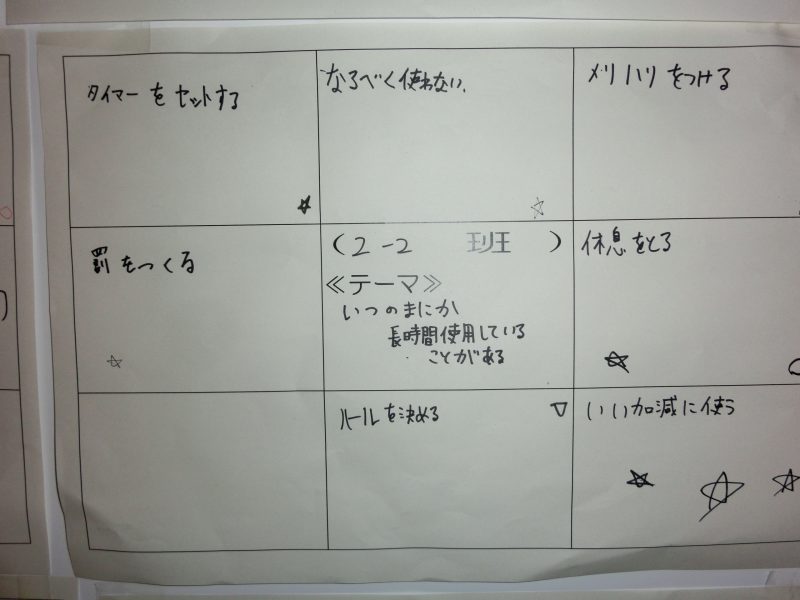 タイマーをセットする
なるべく使わない。
メリハリをつける
罰をつくる
(2-2 班)
≪テーマ≫
いつのまにか
長時間使用している
ことがある
休息をとる
ルールを決める
いい加減に使う